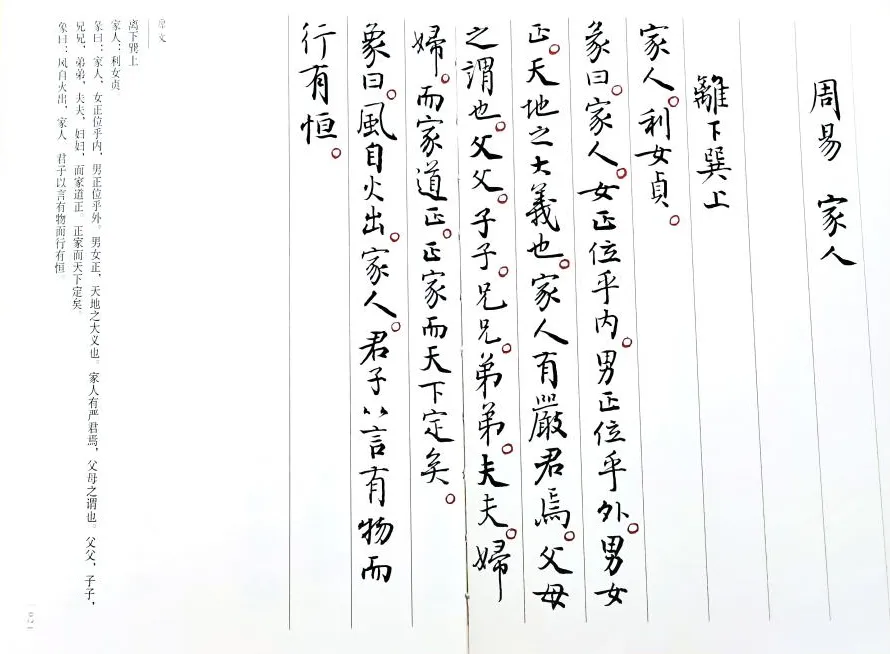 周易 家人
離下巽上
家人。利女貞。
彖曰。家人。女正位乎内。男正位乎外。男女
正。天地之大義也。家人有嚴君焉。父母
之謂也。父父。子子。兄兄。弟弟。夫夫。婦
婦。而家道正。正家而天下定矣。
象曰。風自火出。家人。君子以言有物而
行有恒。
原文
离下巽上
家人：利女贞
彖曰：家人，女正位乎内，男正位乎外。男女正，天地之大义也。家人有严君焉，父母之谓也。父父，子子，
兄兄，弟弟，夫夫，妇妇，而家道正 正家而天下定矣
象曰：风自火出，家人 君子以言有物而行有恒